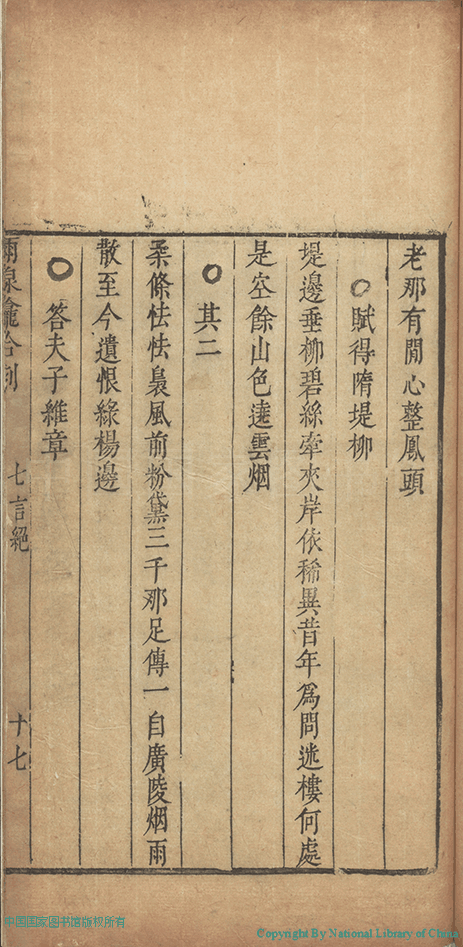 老那有閒心整鳳頭
○賦得隋堤柳
堤邊垂柳碧絲牽夾岸依稀異昔年爲問迷樓何處
是空餘山色遶雲烟
○其二
柔條怯怯裊風前粉黛三千那足傳一自廣陵烟雨
散至今遺恨綠楊邊
○答夫子維章
七言絕 十七
中国国家图书馆版权所有
Copyright By National Library of China